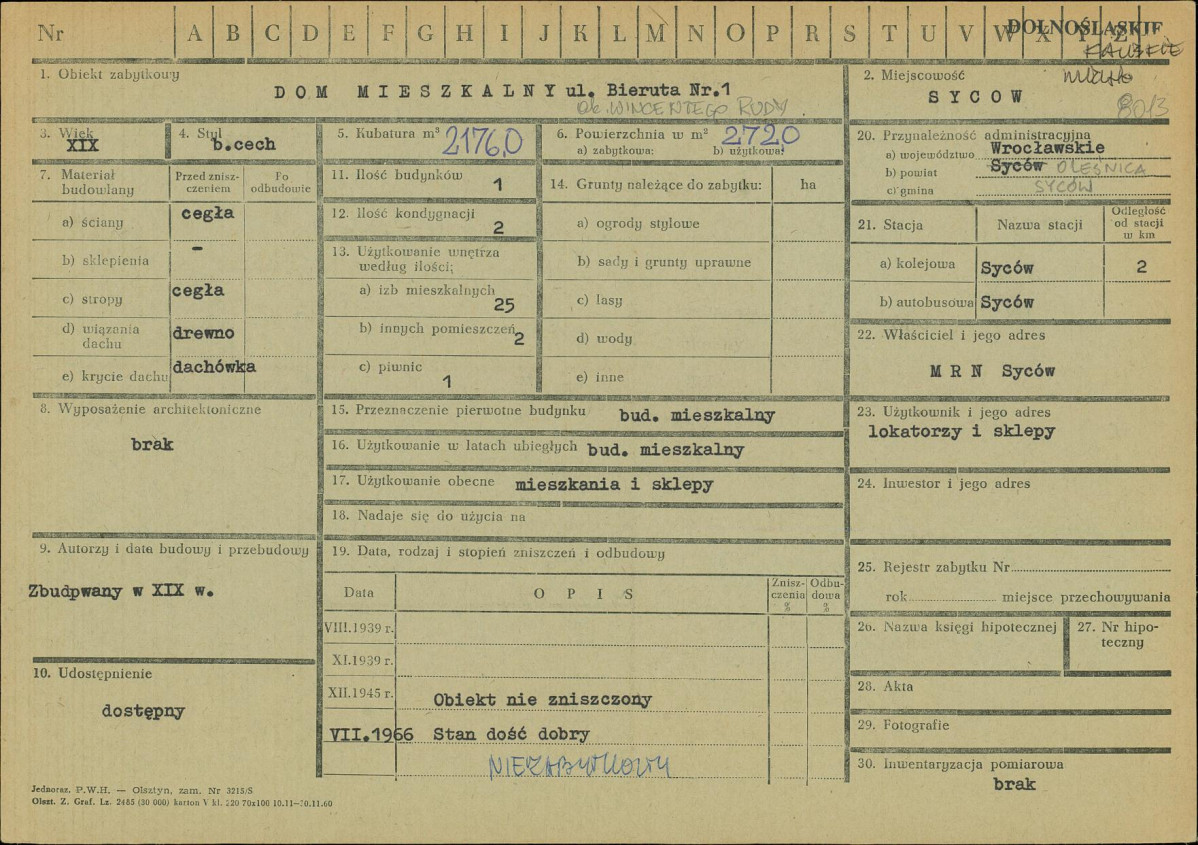 Nr A B C D E F G H I J K L M N O P R S T U V W X Y Z
DOLNOŚLĄSKIE
1. Obiekt zabytkowy
DOM MIESZKALNY ul. Bieruta Nr.1
2. Miejscowość
SYCOW
80/3
3. Wiek
XIX
4. Styl
b.cech
5. Kubatura m³ 2176,0
6. Powierzchnia w m² 272,0
a) zabytkowa: b) użytkowa:
20. Przynależność administracyjna
a) województwo Wrocławskie
b) powiat Syców OLEŚNICA
c) gmina SYCÓW
7. Materiał budowlany
Przed zniszczeniem
Po odbudowie
a) ściany cegła
b) sklepienia –
c) stropy cegła
d) wiązania dachu drewno
e) krycie dachu dachówka
11. Ilość budynków 1
12. Ilość kondygnacji 2
13. Użytkowanie wnętrza według ilości;
a) izb mieszkalnych 25
b) innych pomieszczeń 2
c) piwnic 1
14. Grunty należące do zabytku: ha
a) ogrody stylowe
b) sady i grunty uprawne
c) lasy
d) wody
e) inne
21. Stacja Nazwa stacji Odległość od stacji w km
a) kolejowa Syców 2
b) autobusowa Syców
22. Właściciel i jego adres
M R N Syców
8. Wyposażenie architektoniczne
brak
15. Przeznaczenie pierwotne budynku bud. mieszkalny
16. Użytkowanie w latach ubiegłych bud. mieszkalny
17. Użytkowanie obecne mieszkania i sklepy
18. Nadaje się do użycia na
23. Użytkownik i jego adres
lokatorzy i sklepy
24. Inwestor i jego adres
9. Autorzy i data budowy i przebudowy
Zbudpwany w XIX w.
10. Udostępnienie
dostępny
19. Data, rodzaj i stopień zniszczeń i odbudowy
Data O P I S Zniszczenia % Odbudowa %
VIII.1939 r.
XI.1939 r.
XII.1945 r. Obiekt nie zniszczony
VII.1966 Stan dość dobry
NIEZABYTKOWY
25. Rejestr zabytku Nr
rok miejsce przechowywania
26. Nazwa księgi hipotecznej
27. Nr hipoteczny
28. Akta
29. Fotografie
30. Inwentaryzacja pomiarowa
brak
Jednoraz. P.W.H. — Olsztyn, zam. Nr 3215/S
Olszt. Z. Graf. Lz. 2485 (30 000) karton V kl. 220 70x100 10.11—30.11.60